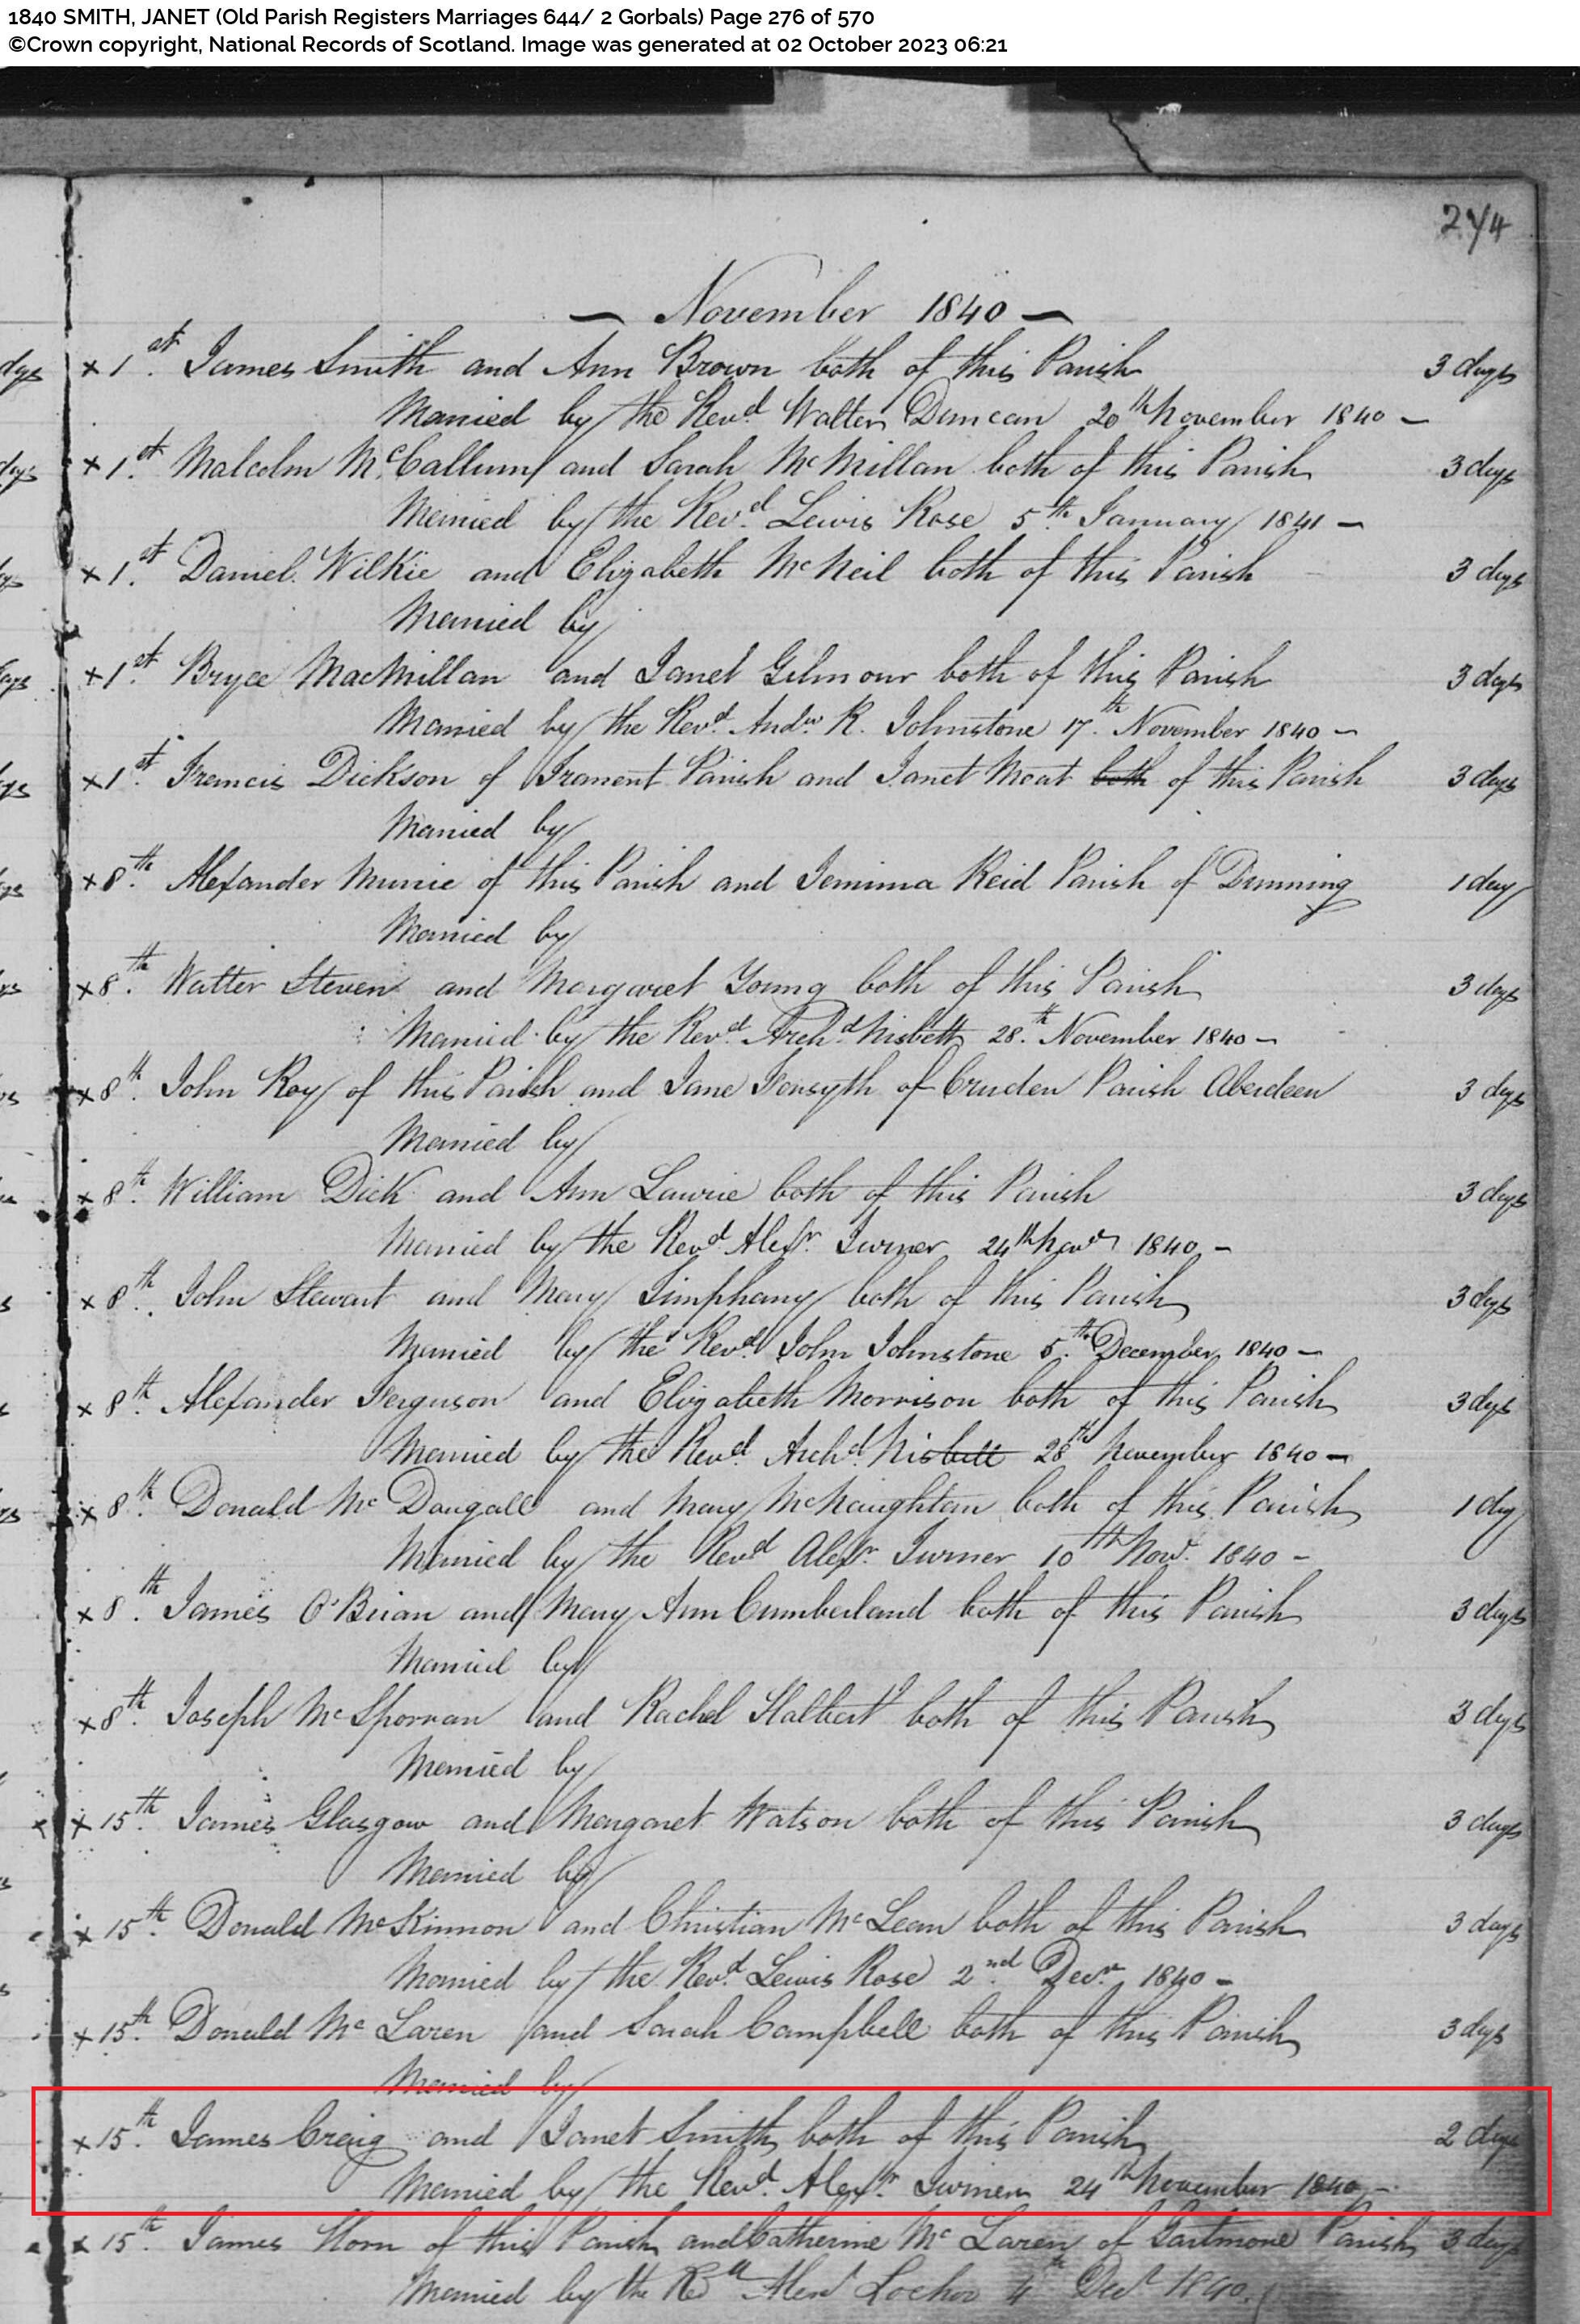 1840 SMITH, JANET (Old Parish Registers Marriages 644/ 2 Gorbals) Page 276 of 570
©Crown copyright, National Records of Scotland. Image was generated at 02 October 2023 06:21
274
November 1840
days x 1st. James Smith and Ann Brown both of this Parish 3 days
Married by the Revd. Walter Duncan 20th November 1840 –
days x 1st. Malcolm McCallum and Sarah McMillan both of this Parish 3 days
Married by the Revd. Lewis Rose 5th. January 1841 –
x 1st. Daniel Wilkie and Elizabeth McNeil both of this Parish 3 days
Married by
days x 1st. Bryce MacMillan and Janet Gilmour both of this Parish 3 days
Married by the Revd. Andw. R. Johnstone 17th. November 1840 –
x 1st. Francis Dickson of Parish and Janet Moat both of this Parish 3 days
Married by
x 8th. Alexander of this Parish and Jemima Reid Parish of Dunning 1 day
Married by
x 8th. Walter Steven and Margaret Young both of this Parish 3 days
Married by the Revd. Archd. Nisbett 28th. November 1840 –
x 8th. John Roy of this Parish and Jane Forsyth of Cruden Parish Aberdeen 3 days
Married by
x 8th. William Dick and Ann Lawrie both of this Parish 3 days
Married by the Revd. Alexr. Turner 24th Novr 1840 –
x 8th. John Stewart and Mary Simphany both of this Parish 3 days
Married by the Revd. John Johnstone 5th. December 1840 –
x 8th. Alexander Ferguson and Elizabeth Morrison both of this Parish 3 days
Married by the Revd. Archd. Nisbett 28th November 1840 –
x 8th. Donald McDougall and Mary McNaughtan both of this Parish 1 day
Married by the Revd Alexr. Turner 10th Novr. 1840 –
x 8th. James O'Brian and Mary Ann Cumberland both of this Parish 3 days
Married by
x 8th. Joseph McSporran and Rachel Halbert both of this Parish 3 days
Married by
x 15th. James Glasgow and Margaret Watson both of this Parish 3 days
Married by
x 15th. Donald McKinnon and Christian McLean both of this Parish 3 days
Married by the Revd. Lewis Rose 2nd. Decr. 1840 –
x 15th. Donald McLaren and Sarah Campbell both of this Parish 3 days
Married by
x 15th. James Craig and Janet Smith both of this Parish 2 days
Married by the Revd. Alexr. Turner 24th November 1840 –
x 15th. James Horn of this Parish and Catherine McLaren of Parish 3 days
Married by the Rd 4th Decr 1840.